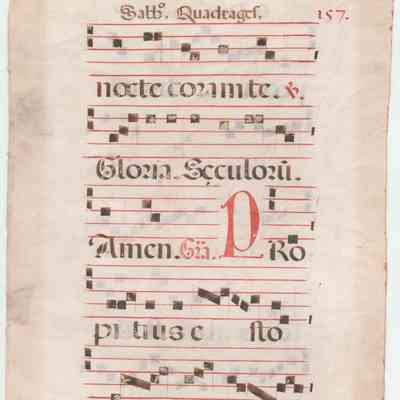 Sabbº. Quadrages. 157.
nocte coram te. ℣.
Gloria. Sęculorũ.
Amen. Gra. PRo
pi tius e sto